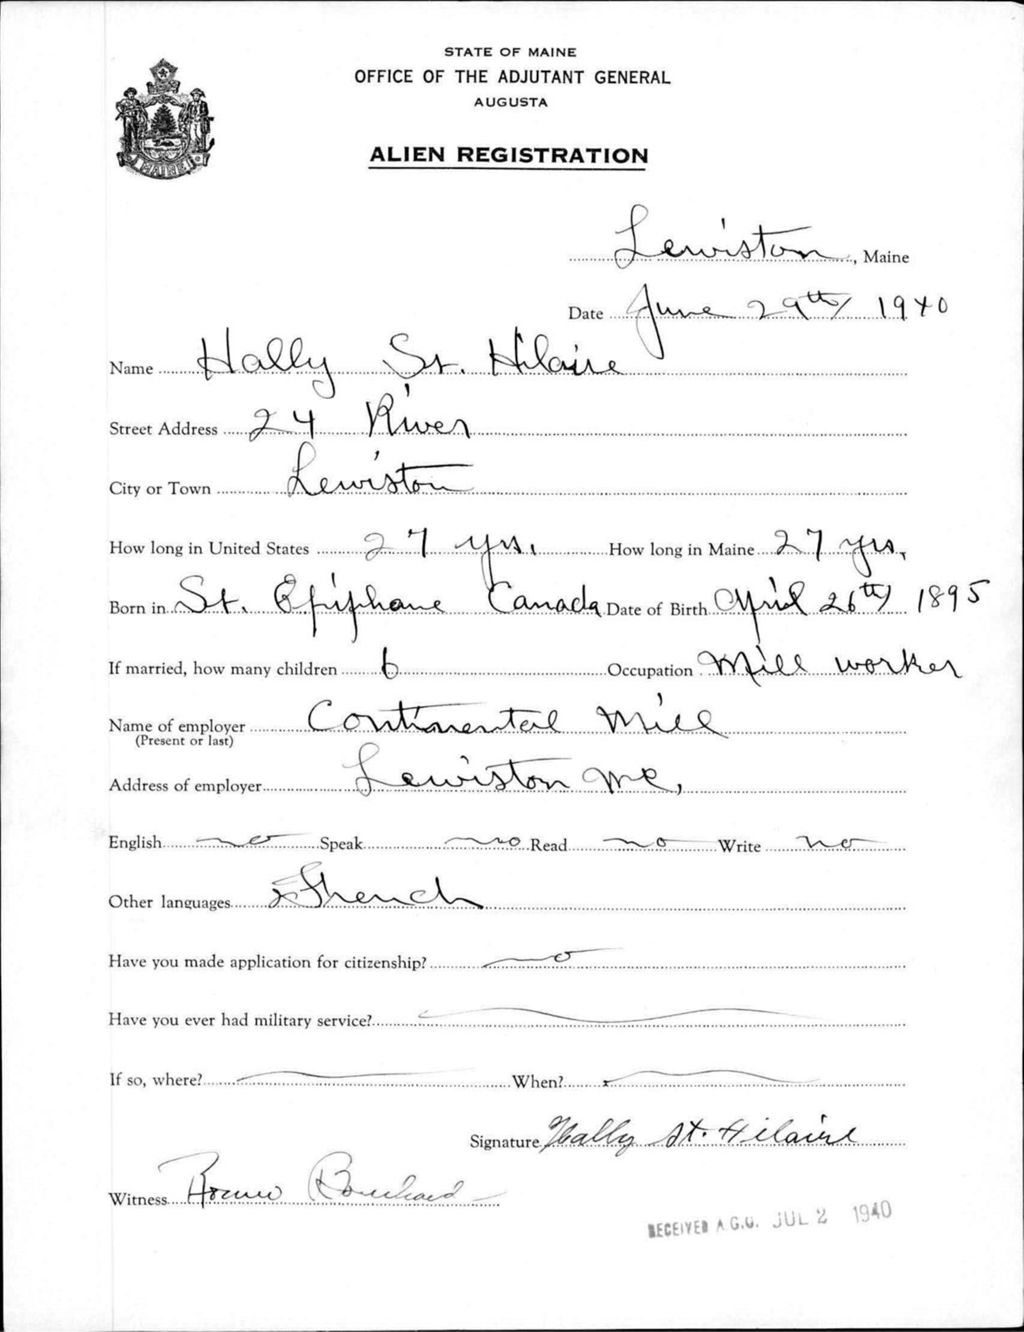 STATE OF MAINE
OFFICE OF THE ADJUTANT GENERAL
AUGUSTA
ALIEN REGISTRATION
MAINE
Lewiston, Maine
Date June 29th / 1940
Name Hally St. Hilaire
Street Address 24 River
City or Town Lewiston
How long in United States 27 yrs. How long in Maine 27 yrs.
Born in St. Epiphane Canada Date of Birth April 26th / 1895
If married, how many children 6 Occupation Mill worker
Name of employer Continental Mill
(Present or last)
Address of employer Lewiston Me,
English no Speak no Read no Write no
Other languages French
Have you made application for citizenship? no
Have you ever had military service?
If so, where? When?
Signature Hally St. Hilaire
Witness Bouchard
RECEIVED A.G.O. JUL 2 1940